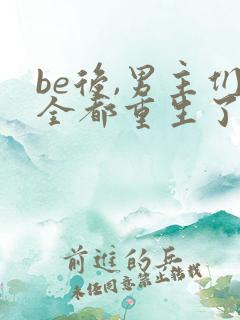 be後,男主们
全都重生了
前進的兵
未经同意禁止转载